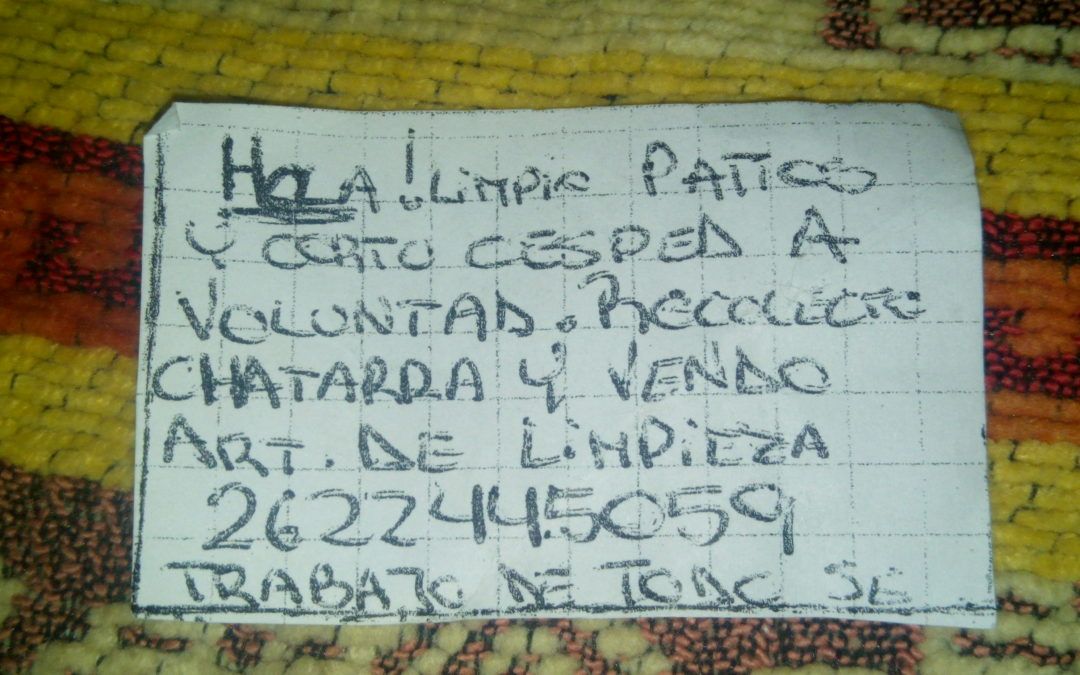 HOLA! LiMPiO PATIOS
Y CORTO CESPED A
VOLUNTAD. RECOLECTO
CHATARRA Y VENDO
ART. DE LiMPiEZA
2622445059
TRABAJO DE TODO SE